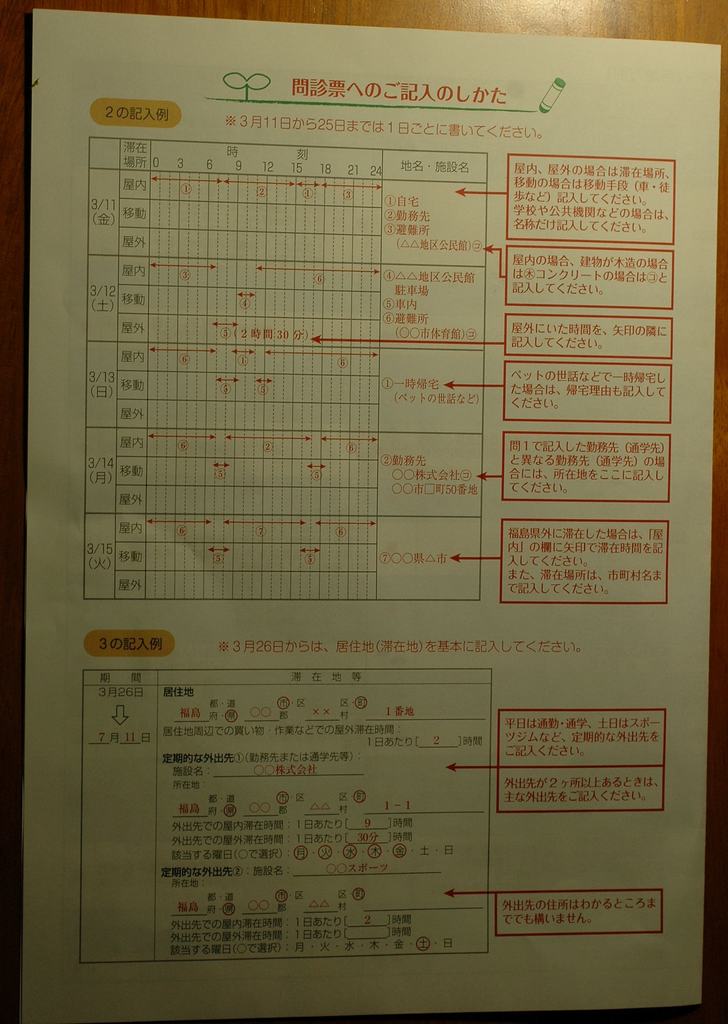 問診票へのご記入のしかた
2の記入例
※3月11日から25日までは1日ごとに書いてください。
滞在場所 時刻 地名・施設名
0 3 6 9 12 15 18 21 24
3/11(金)
屋内 ① ② ④ ③
移動
屋外
①自宅
②勤務先
③避難所
(△△地区公民館)㋙
屋内、屋外の場合は滞在場所、
移動の場合は移動手段(車・徒
歩など)記入してください。
学校や公共機関などの場合は、
名称だけ記入してください。
屋内の場合、建物が木造の場合
は㊍コンクリートの場合は㋙と
記入してください。
3/12(土)
屋内 ③ ⑥
移動 ④
屋外 ⑤(2時間30分)
④△△地区公民館
駐車場
⑤車内
⑥避難所
(○○市体育館)㋙
屋外にいた時間を、矢印の隣に
記入してください。
3/13(日)
屋内 ⑥ ① ⑥
移動 ⑤ ⑤
屋外
①一時帰宅
(ペットの世話など)
ペットの世話などで一時帰宅し
た場合は、帰宅理由も記入して
ください。
3/14(月)
屋内 ⑥ ② ⑥
移動 ⑤ ⑤
屋外
②勤務先
○○株式会社㋙
○○市□町50番地
問1で記入した勤務先(通学先)
と異なる勤務先(通学先)の場
合には、所在地をここに記入し
てください。
3/15(火)
屋内 ⑥ ⑦ ⑥
移動 ⑤ ⑤
屋外
⑦○○県△市
福島県外に滞在した場合は、「屋
内」の欄に矢印で滞在時間を記
入してください。
また、滞在場所は、市町村名ま
で記入してください。
3の記入例
※3月26日からは、居住地(滞在地)を基本に記入してください。
期間 滞在地等
3月26日
7月11日
居住地
都・道 市・区 区・町
福島 府・県 ○○ 郡 ×× 村 1番地
居住地周辺での買い物・作業などでの屋外滞在時間:
1日あたり[ 2 ]時間
定期的な外出先①(勤務先または通学先等):
施設名: ○○株式会社
所在地:
都・道 市・区 区・町
福島 府・県 ○○ 郡 △△ 村 1-1
外出先での屋内滞在時間:1日あたり[ 9 ]時間
外出先での屋外滞在時間:1日あたり[ 30分 ]時間
該当する曜日(○で選択):月・火・水・木・金・土・日
定期的な外出先②:施設名: ○○スポーツ
所在地:
都・道 市・区 区・町
福島 府・県 ○○ 郡 △△ 村
外出先での屋内滞在時間:1日あたり[ 2 ]時間
外出先での屋外滞在時間:1日あたり[ ]時間
該当する曜日(○で選択):月・火・水・木・金・土・日
平日は通勤・通学、土日はスポー
ツジムなど、定期的な外出先を
ご記入ください。
外出先が2ヶ所以上あるときは、
主な外出先をご記入ください。
外出先の住所はわかるところま
ででも構いません。